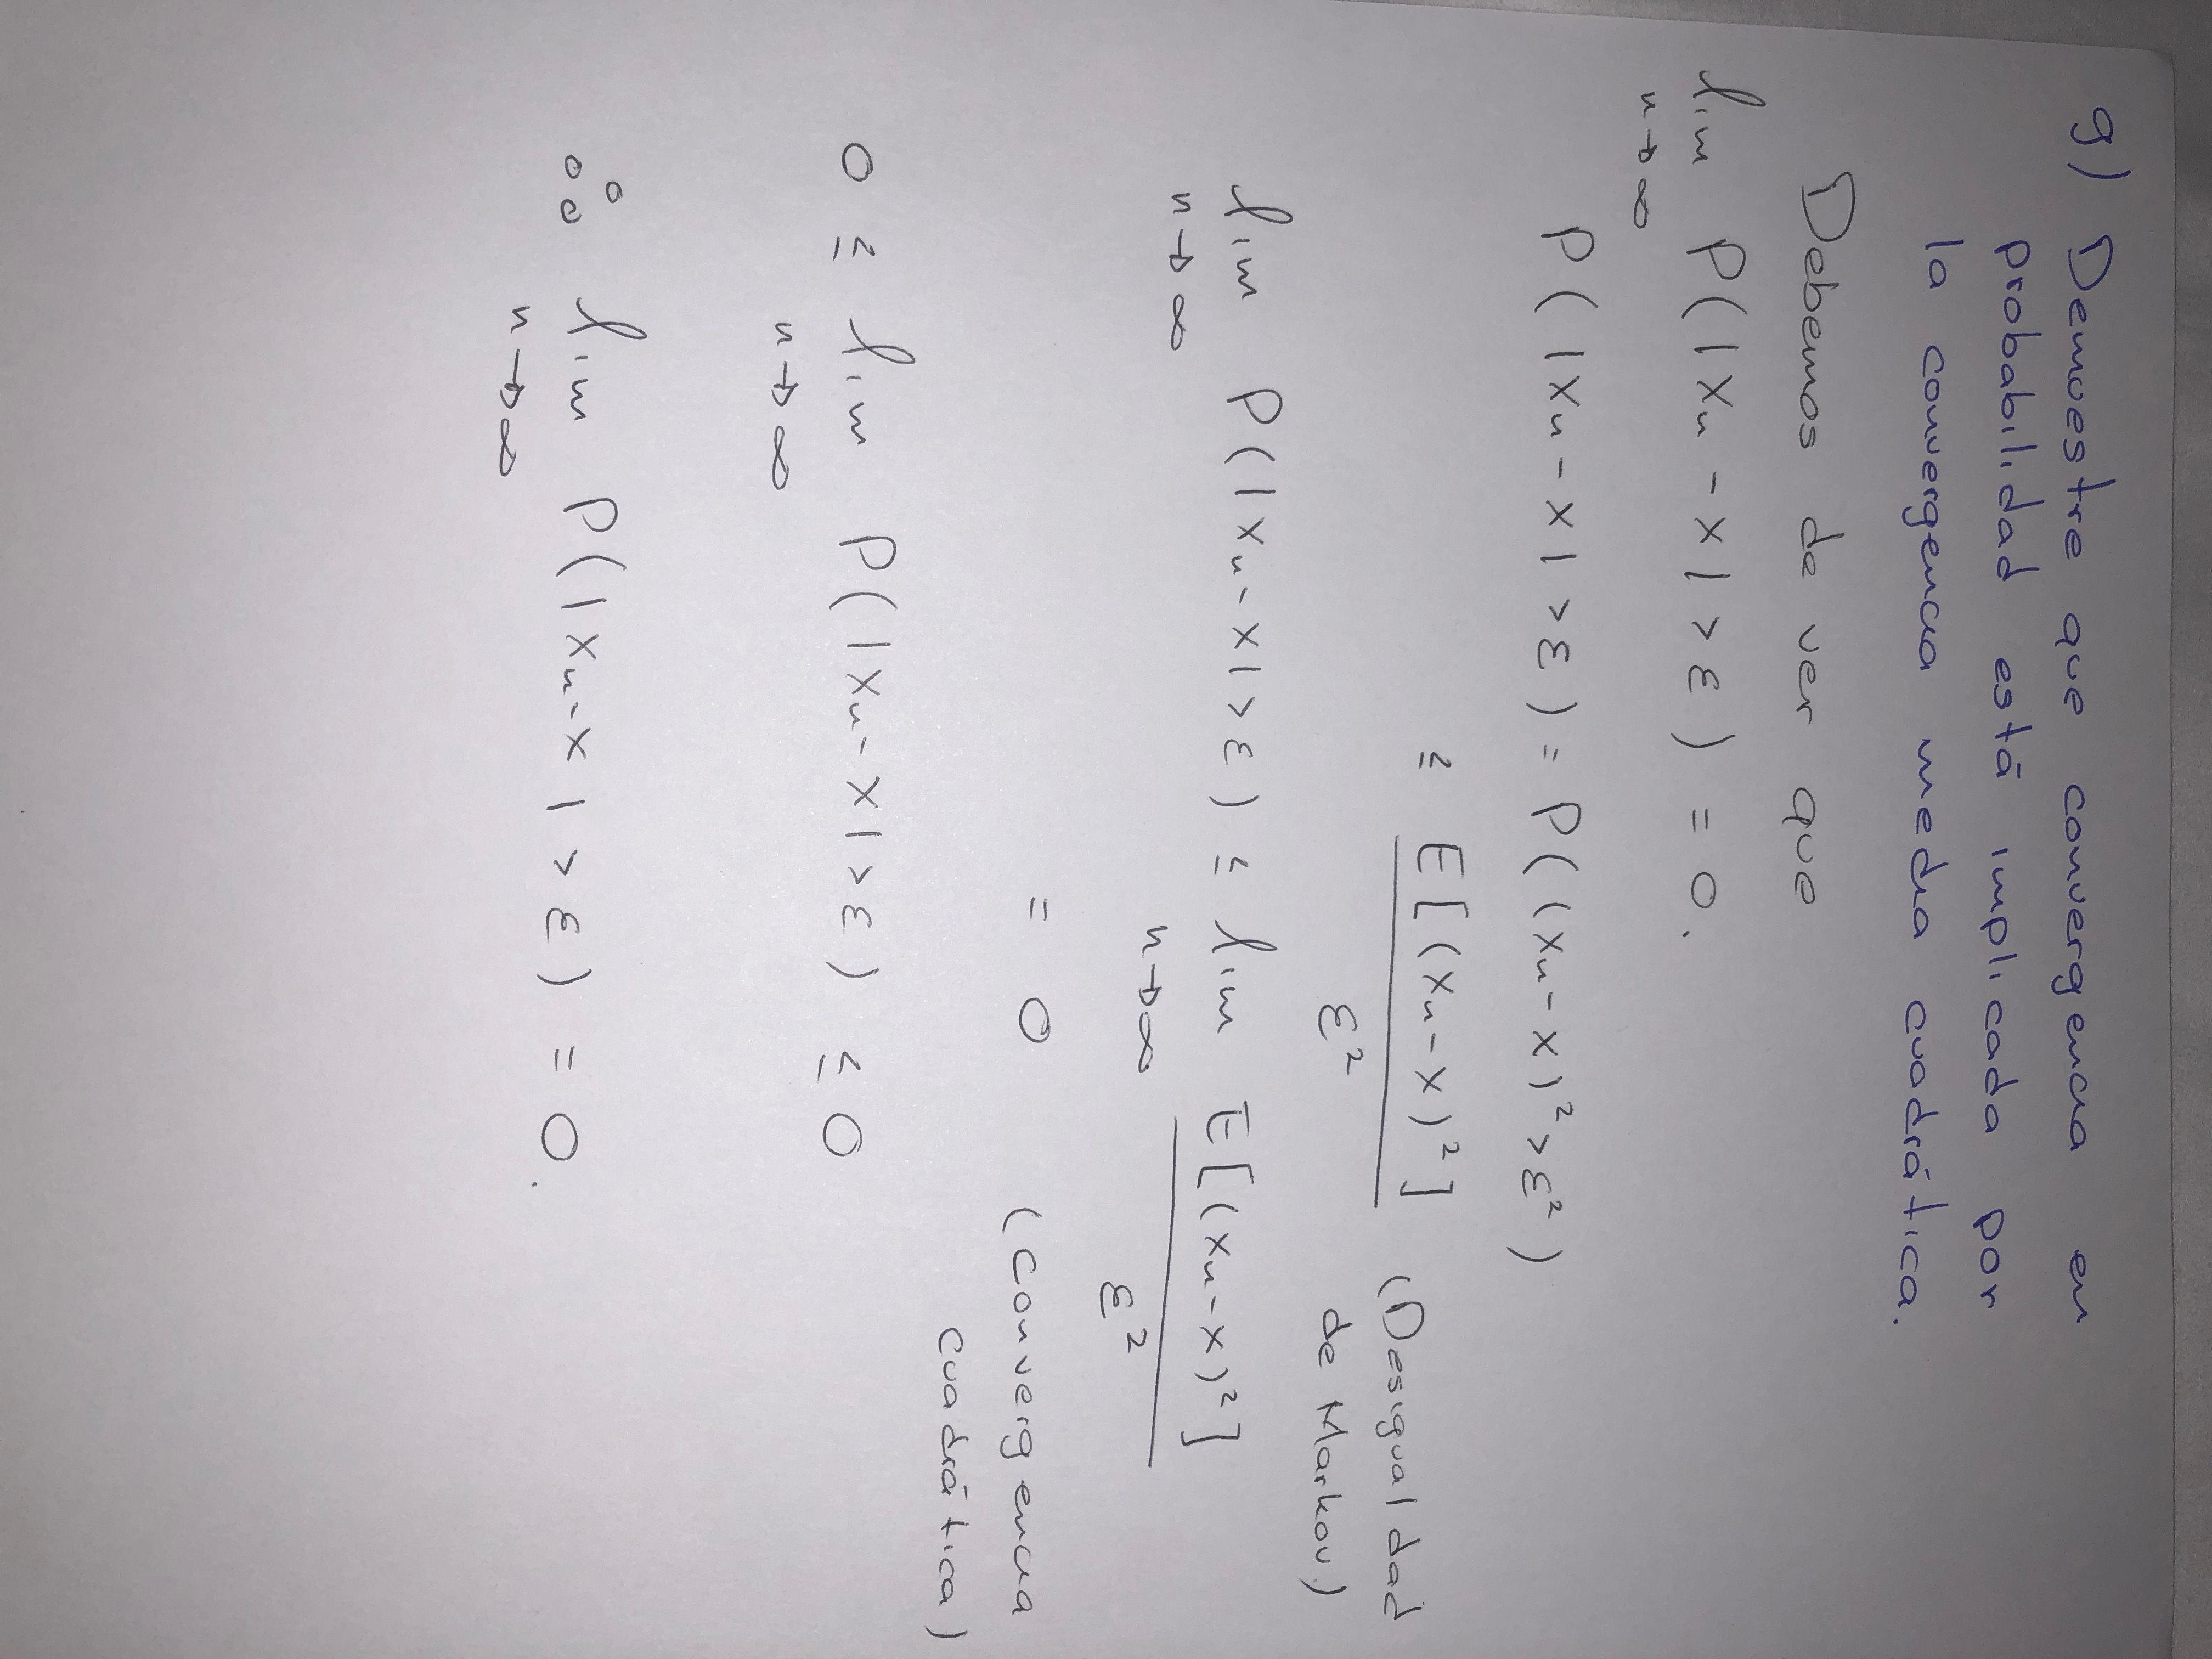 g) Demuestre que convergencia en
probabilidad está implicada por
la convergencia media cuadrática.
Debemos de ver que
lim P(|Xn - X| > ε) = 0.
n→∞
P(|Xn - X| > ε) = P((Xn - X)² > ε²)
≤ E[(Xn - X)²] / ε² (Desigualdad
de Markov)
lim P(|Xn - X| > ε) ≤ lim E[(Xn - X)²] / ε²
n→∞ n→∞
= 0 (Convergencia
cuadrática)
0 ≤ lim P(|Xn - X| > ε) ≤ 0
n→∞
∴ lim P(|Xn - X| > ε) = 0.
n→∞